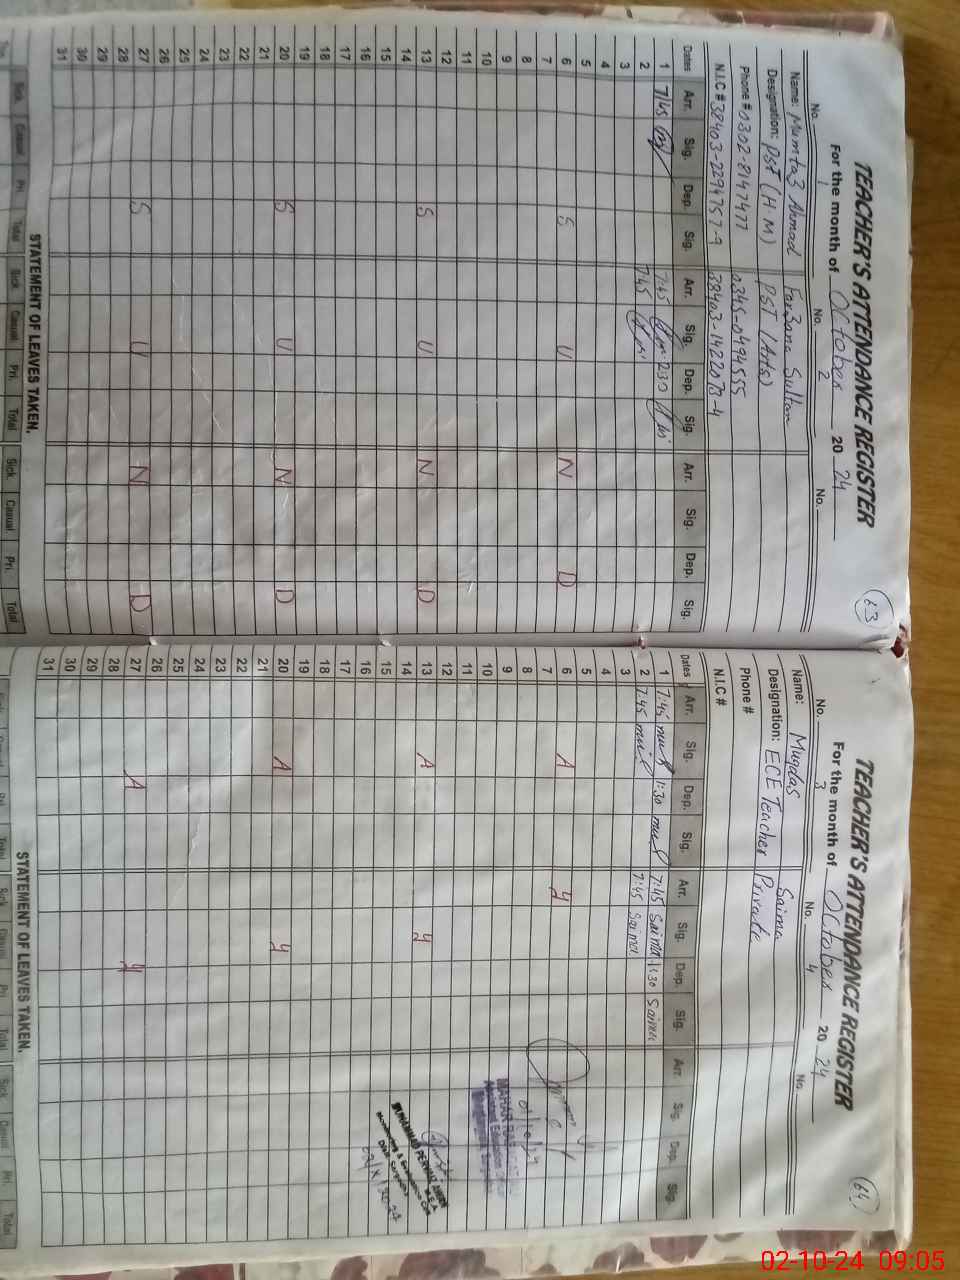 TEACHER'S ATTENDANCE REGISTER
63
For the month of October 20 24
No. 1 No. 2 No.
Name: Mumtaz Ahmad Farzana Sultan
Designation: PST (H M) PST (Arts)
Phone # 0302-8147477 0345-0494555
N.I.C # 38403-2294757-9 38403-1422073-4
Dates Arr. Sig. Dep. Sig. Arr. Sig. Dep. Sig. Arr. Sig. Dep. Sig.
1 7/45 7:45 2:30
2 7:45
3
4
5
6 S U N D
7
8
9
10
11
12
13 S U N D
14
15
16
17
18
19
20 S U N D
21
22
23
24
25
26
27 S U N D
28
29
30
31
STATEMENT OF LEAVES TAKEN.
Sick Casual Pri. Total Sick Casual Pri. Total Sick Casual Pri. Total
TEACHER'S ATTENDANCE REGISTER
64
For the month of October 20 24
No. 3 No. 4 No.
Name: Muqdas Saima
Designation: ECE Teacher Private
Phone #
N.I.C #
Dates Arr. Sig. Dep. Sig. Arr. Sig. Dep. Sig. Arr. Sig. Dep. Sig.
1 7:45 1:30 7:45 Saima 1:30 Saima
2 7:45 7:45 Saima
3
4
5
6 A Y
7
8
9
10
11
12
13 A Y
14
15
16
17
18
19
20 A Y
21
22
23
24
25
26
27 A Y
28
29
30
31
STATEMENT OF LEAVES TAKEN.
02-10-24 09:05